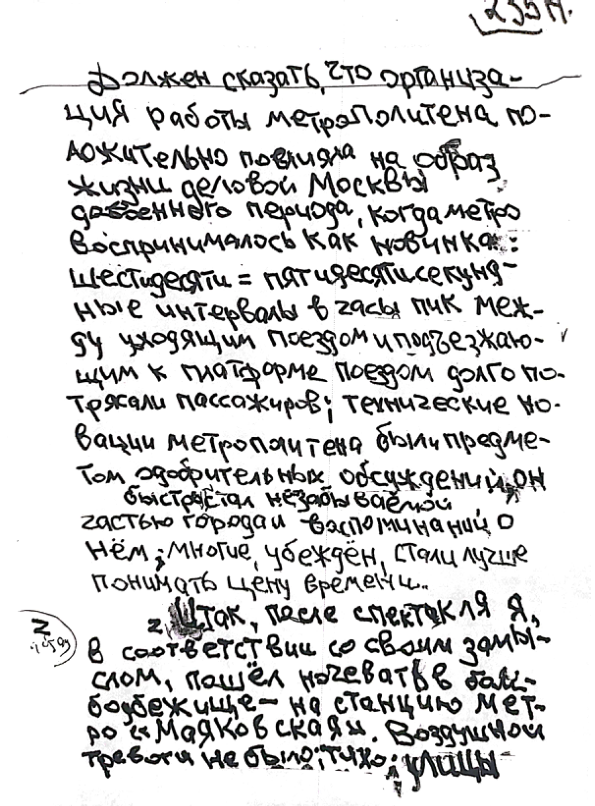 235А.
Должен сказать, что организа-
ция работы метрополитена по-
ложительно повлияла на образ
жизни деловой Москвы
довоенного периода, когда метро
воспринималось как новинка:
шестидесяти = пятидесятисекунд-
ные интервалы в часы пик меж-
ду уходящим поездом и подъезжаю-
щим к платформе поездом долго по-
трясали пассажиров; технические но-
вации метрополитена были предме-
том одобрительных обсуждений; он
быстро стал незабываемой
частью города и воспоминаний о
нём; многие, убеждён, стали лучше
понимать цену времени..
2. Итак, после спектакля я,
2
в соответствии со своим замы-
слом, пошёл ночевать в бом-
бо́убежище – на станцию мет-
ро «Маяковская». Воздушной
тревоги не было; тихо; улицы